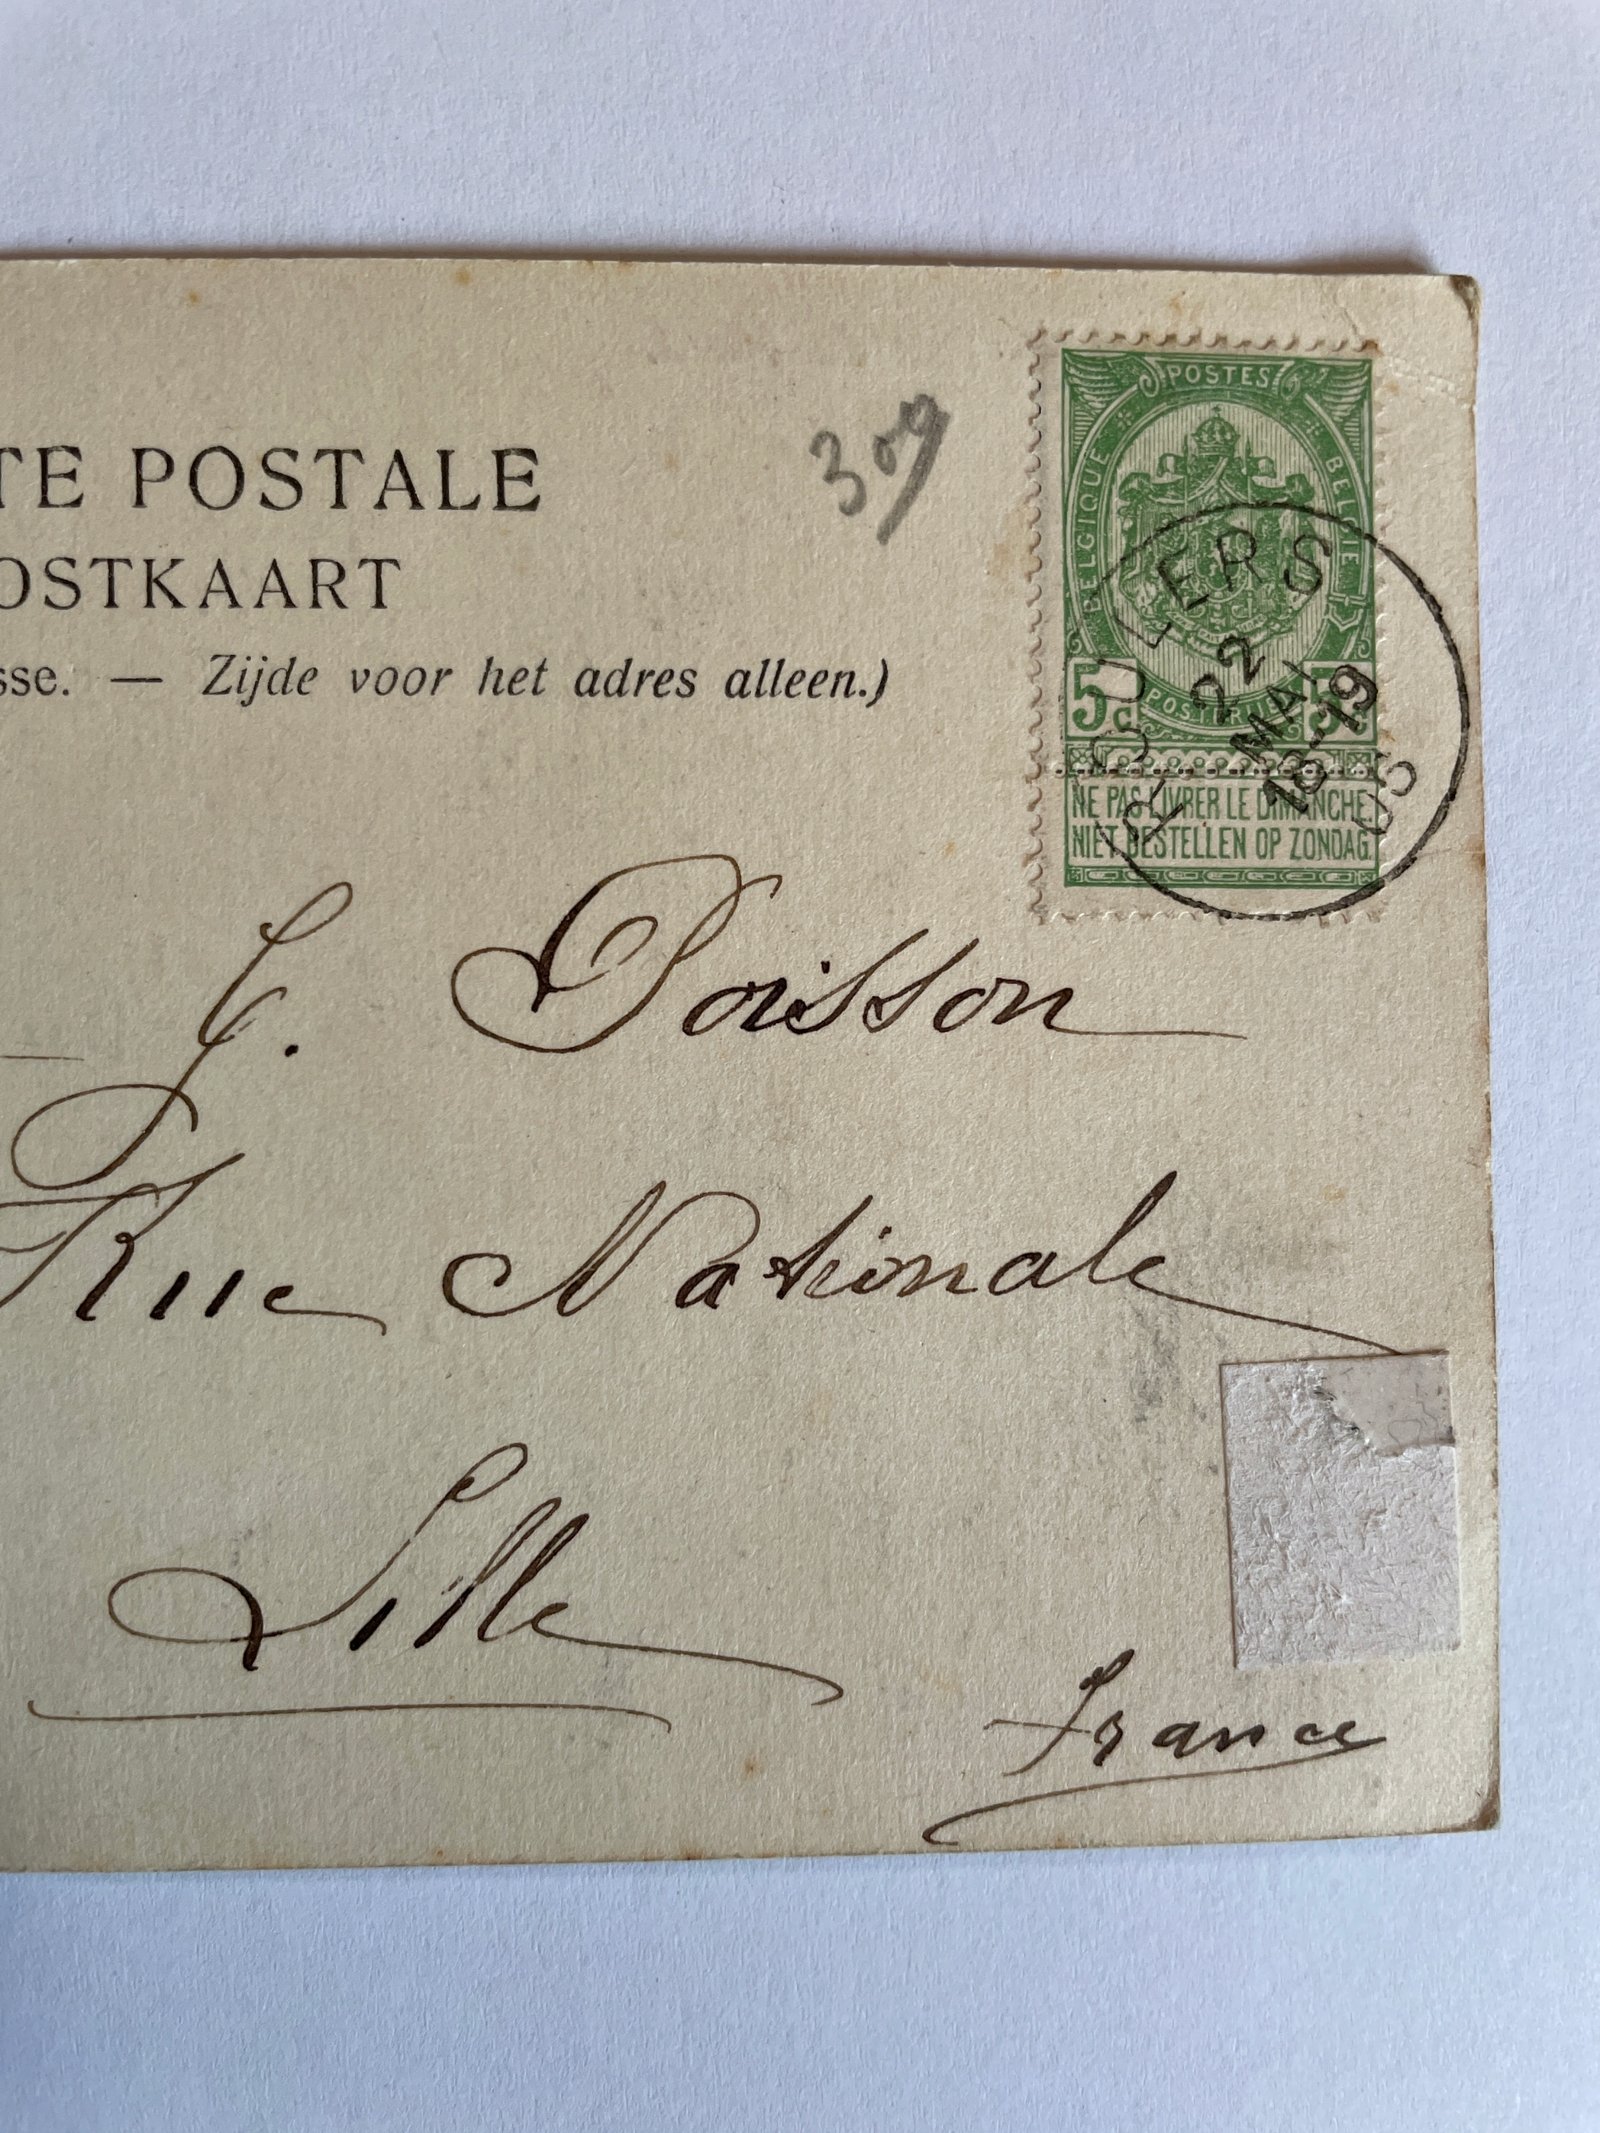 TE POSTALE
OSTKAART
sse. — Zijde voor het adres alleen.)
309
POSTES
BELGIQUE
BELGIË
5c POSTERIJEN 5c
NE PAS LIVRER LE DIMANCHE.
NIET BESTELLEN OP ZONDAG.
ROULERS
22
MAI
18-19
05
Poisson
Rue Nationale
Lille
France